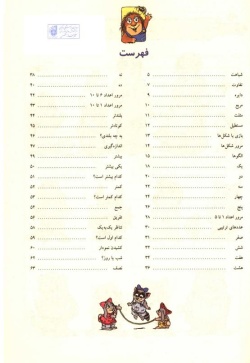 فهرست
شباهت ۵
تفاوت ۷
دایره ۹
مربع ۱۰
مثلث ۱۱
مستطیل ۱۲
بازی با شکل‌ها ۱۳
مرور شکل‌ها ۱۴
الگوها ۱۵
یک ۱۸
دو ۲۰
سه ۲۲
چهار
پنج ۲۶
مرور اعداد ۱ تا ۵ ۲۸
عددهای ترتیبی ۳۰
صفر ۳۱
شش
هفت ۳۴
هشت ۳۶
نه ۳۸
ده ۴۰
مرور اعداد ۶ تا ۱۰ ۴۲
مرور اعداد ۱ تا ۱۰ ۴۳
بلندتر ۴۴
کوتاه‌تر ۴۵
به چه بلندی؟ ۴۶
اندازه‌گیری ۴۷
بیشتر ۴۹
یکی بیشتر ۵۰
کدام بیشتر است؟ ۵۱
کمتر ۵۲
کدام کمتر است؟ ۵۳
جمع ۵۴
تفریق ۵۶
تناظر یک‌به‌یک ۵۸
کدام اول است؟ ۵۹
کشیدن نمودار ۶۰
شب یا روز؟ ۶۲
نصف ۶۳